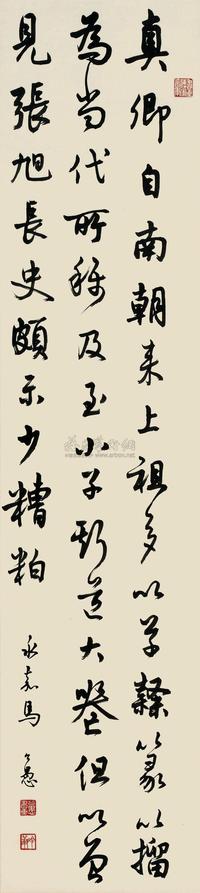 真卿自南朝来上祖多以草隸篆籀
為当代所称及至小子斯道大喪但以曾
見張旭長史頗示少糟粕
永嘉馬公愚